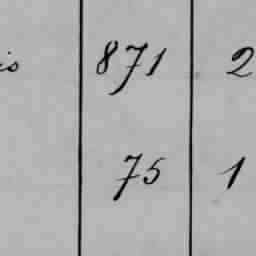 is 871 2
75 1